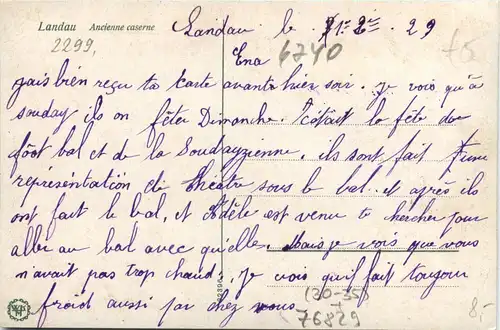 Landau Ancienne caserne
2299,
Landau le 1e 2e . 29
Ena
6740
jais bien reçu ta karte avante hier soir. je vois qu'à
souday ils on fêter Dimanche. s'était la fête du
foot bal et de la ils sont fait
représéntation de théâtre sous le bal.. et après ils
ont fait le bal, et Adèle est venu te chercher pour
aller au bal avec qu'elle. Mais je vois que vous
n'avait pas trop chaud. je vois qu'il fait toujour
froid aussi par chez vous
(30-35)
76829
8.-